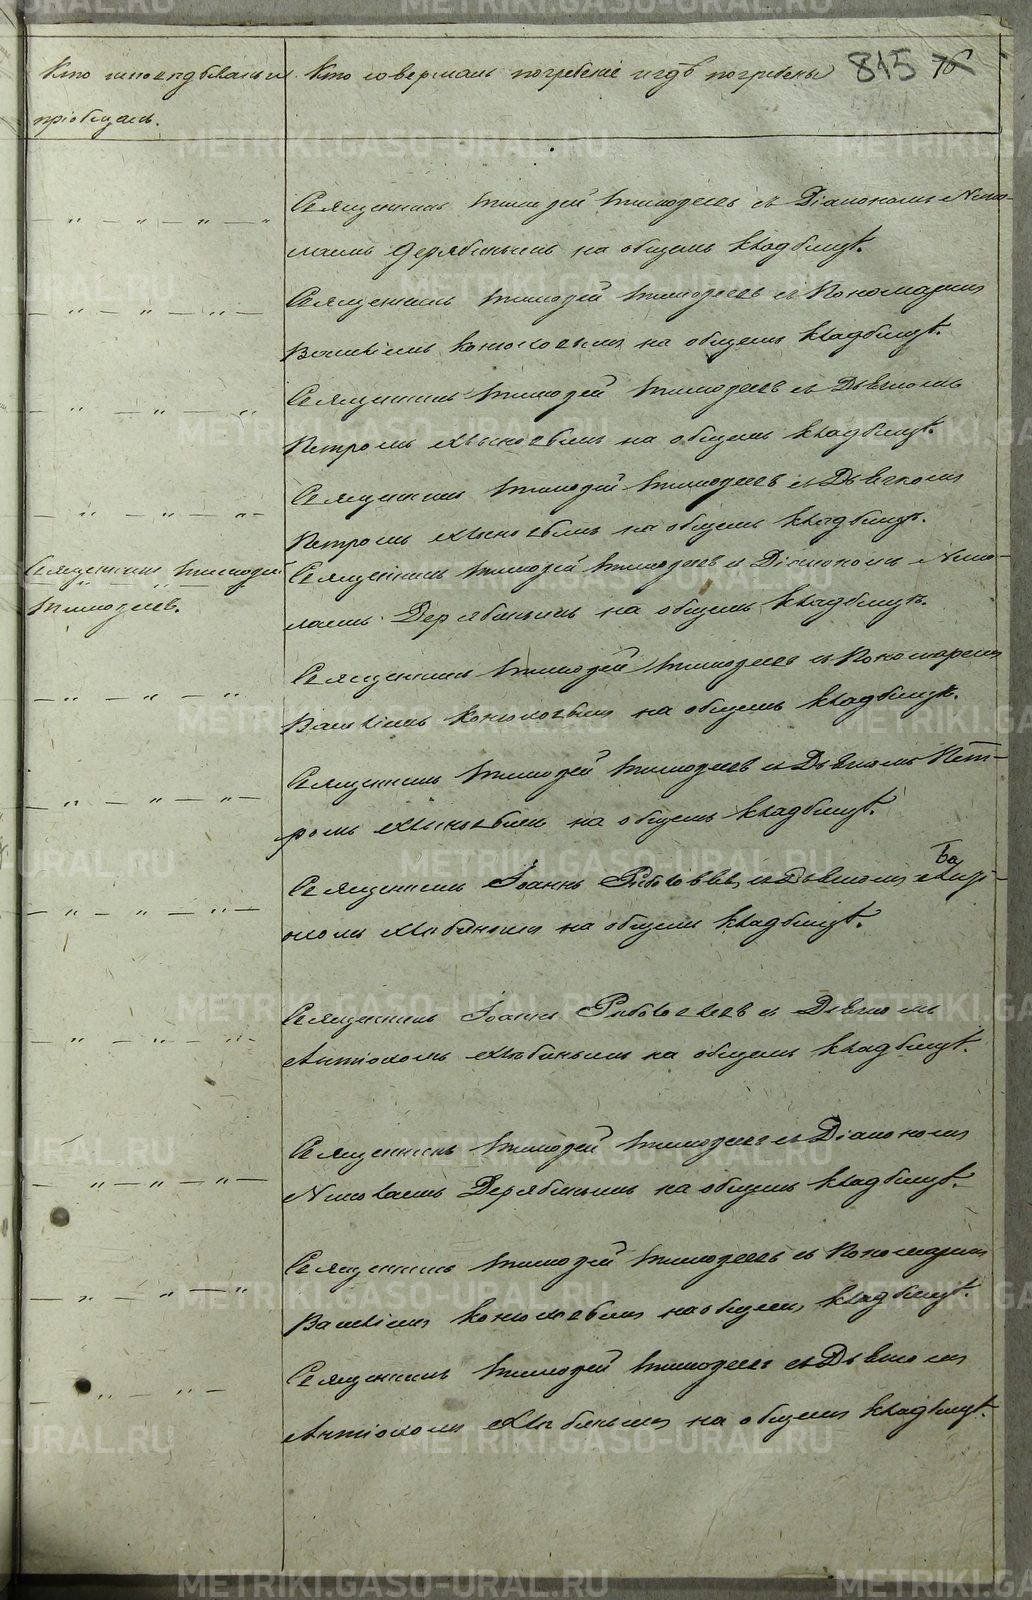 Кто исповѣдывалъ и
пріобщалъ.
Кто совершалъ погребеніе и гдѣ погребены
815
Священникъ Тимоѳей Тимоѳеевъ съ Діакономъ Нико-
лаемъ Дерябинымъ на общемъ кладбищѣ.
Священникъ Тимоѳей Тимоѳеевъ съ Пономаремъ
на общемъ кладбищѣ.
Священникъ Тимоѳей Тимоѳеевъ съ Дьячкомъ
Петромъ на общемъ кладбищѣ.
Священникъ Тимоѳей Тимоѳеевъ съ Дьячкомъ
Петромъ на общемъ кладбищѣ.
Священникъ Тимоѳей
Тимоѳеевъ.
Священникъ Тимоѳей Тимоѳеевъ съ Діакономъ Нико-
лаемъ Дерябинымъ на общемъ кладбищѣ.
Священникъ Тимоѳей Тимоѳеевъ съ Пономаремъ
на общемъ кладбищѣ.
Священникъ Тимоѳей Тимоѳеевъ съ Дьячкомъ Пет-
ромъ на общемъ кладбищѣ.
Священникъ Іоаннъ съ Дьячкомъ
на общемъ кладбищѣ.
Священникъ Іоаннъ съ Дьячкомъ
Антіохомъ на общемъ кладбищѣ.
Священникъ Тимоѳей Тимоѳеевъ съ Діакономъ
Николаемъ Дерябинымъ на общемъ кладбищѣ.
Священникъ Тимоѳей Тимоѳеевъ съ Пономаремъ
на общемъ кладбищѣ.
Священникъ Тимоѳей Тимоѳеевъ съ Дьячкомъ
Антіохомъ на общемъ кладбищѣ.
METRIKI.GASO-URAL.RU